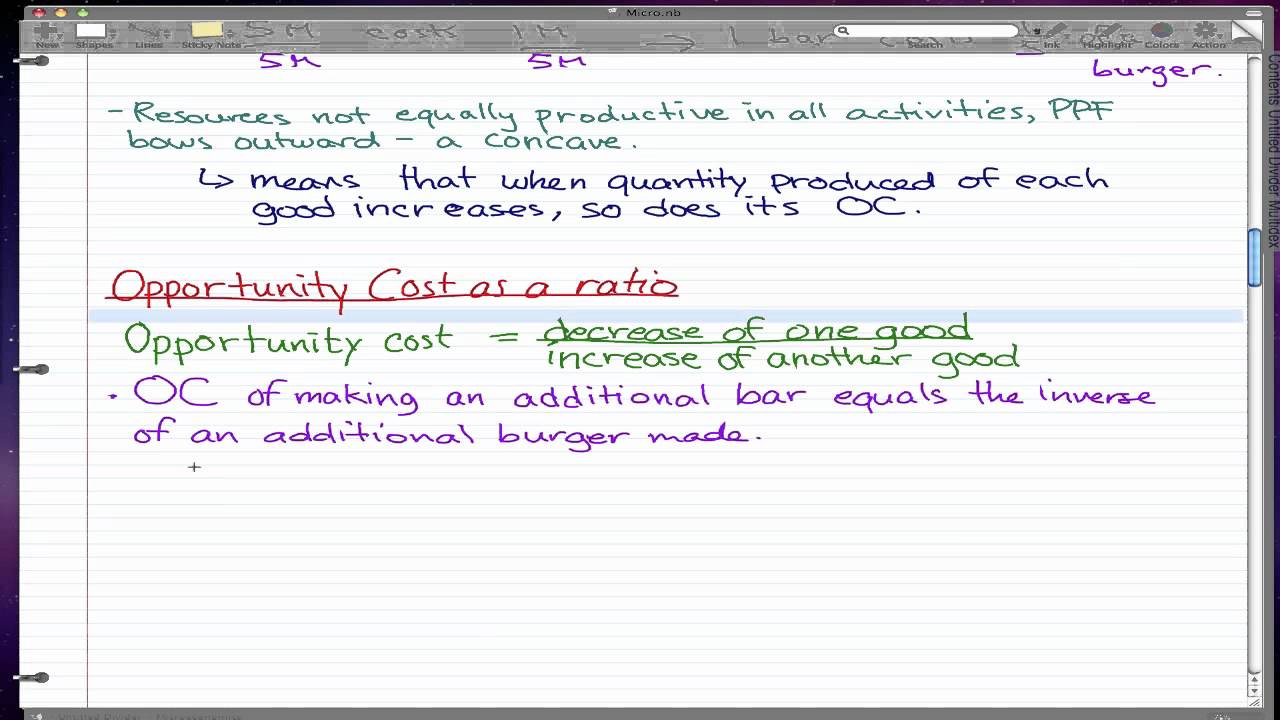 Micro.nb
New Shapes Lines Sticky Note Search Ink Highlight Colors Action
5M costs 1M → 1 bar
5M 5M
burger.
- Resources not equally productive in all activities, PPF
bows outward - a concave.
↳ means that when quantity produced of each
good increases, so does its OC.
Opportunity Cost as a ratio
Opportunity cost = decrease of one good
increase of another good
• OC of making an additional bar equals the inverse
of an additional burger made.
Contents Untitled Divider Multidex